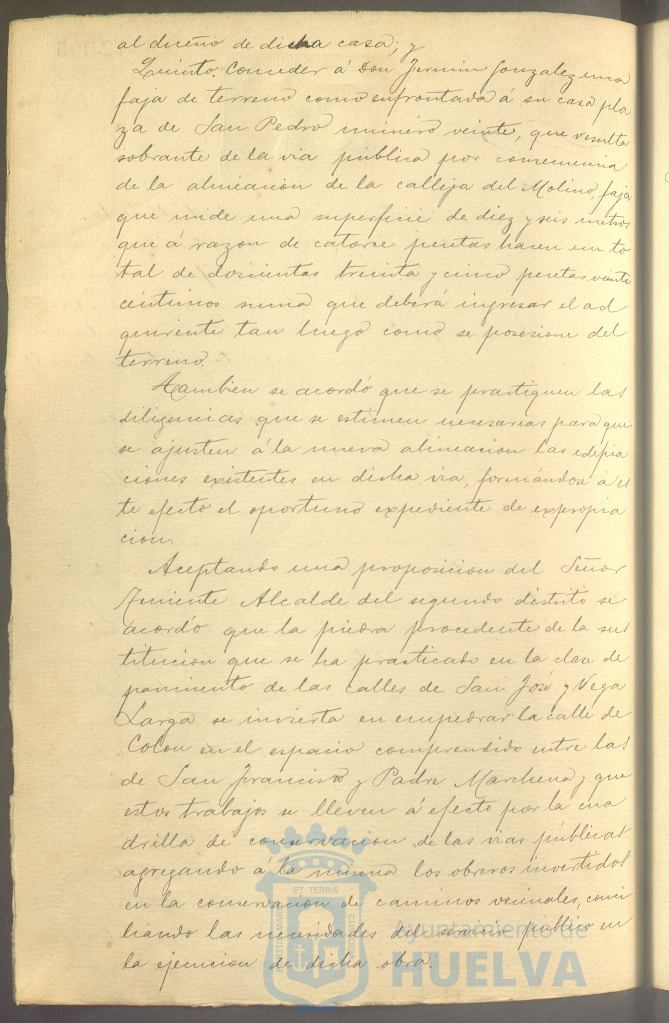 al dueño de dicha casa; y
Quinto. Conceder á Don Fermin Gonzalez una
faja de terreno como enfrontada á su casa pla
za de San Pedro numero veinte, que resulta
sobrante de la via pública por consecuencia
de la alineacion de la calleja del Molino, faja
que mide una superficie de diez y seis metros
que á razon de catorce pesetas hacen un to
tal de doscientas treinta y cinco pesetas veinte
céntimos suma que deberá ingresar el ad
quirente tan luego como se posesione del
terreno.
Tambien se acordó que se practiquen las
diligencias que se estimen necesarias para que
se ajusten á la nueva alineacion las edifica
ciones existentes en dicha via, formándose á es
te efecto el oportuno expediente de expropia
cion.
Aceptando una proposicion del Señor
Teniente Alcalde del segundo distrito se
acordó que la piedra procedente de la sus
titucion que se ha practicado en la clase de
pavimento de las calles de San José y Vega
Larga se invierta en empedrar la calle de
Colon en el espacio comprendido entre las
de San Francisco y Padre Marchena y que
estos trabajos se lleven á efecto por la cua
drilla de conservacion de las vias públicas
agregando á la misma los obreros invertidos
en la conservacion de caminos vecinales, conci
liando las necesidades del servicio público en
la ejecucion de dicha obra.
Ayuntamiento de
HUELVA